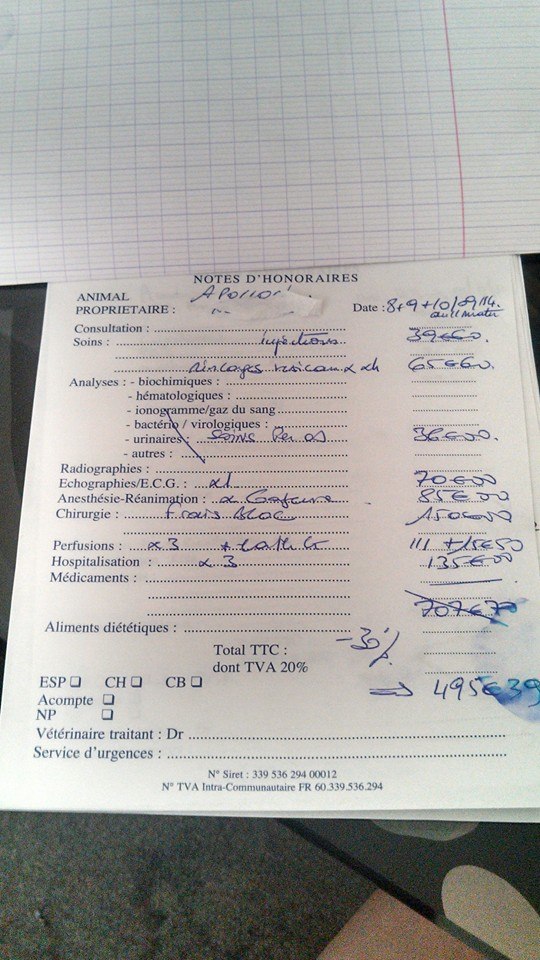 NOTES D'HONORAIRES
ANIMAL
PROPRIETAIRE : Date : 8+9+10/09/14.
Consultation : 39€60.
Soins : injections
rinçages 65€60.
Analyses : - biochimiques :
- hématologiques :
- ionogramme/gaz du sang
- bactério / virologiques :
- urinaires : soins Per os 36€00.
- autres :
Radiographies :
Echographies/E.C.G. : x1 70€00
Anesthésie-Réanimation : 85€00
Chirurgie : frais Bloc 150€00
Perfusions : x3 111 +15€50
Hospitalisation : x3 135€00
Médicaments :
707€70
Aliments diététiques :
-30%
Total TTC :
dont TVA 20%
ESP CH CB ⇒ 495€39
Acompte
NP
Vétérinaire traitant : Dr
Service d'urgences :
N° Siret : 339 536 294 00012
N° TVA Intra-Communautaire FR 60.339.536.294